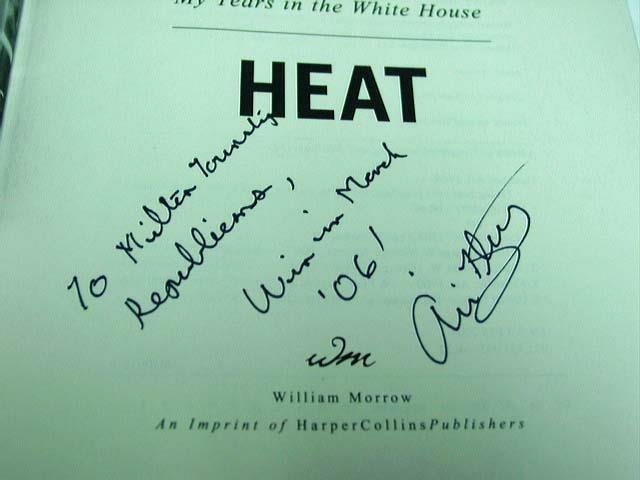 My Years in the White House
HEAT
To Milton Township
Republicans,
Win in March
'06!
Ari Fleischer
wm
William Morrow
An Imprint of HarperCollinsPublishers